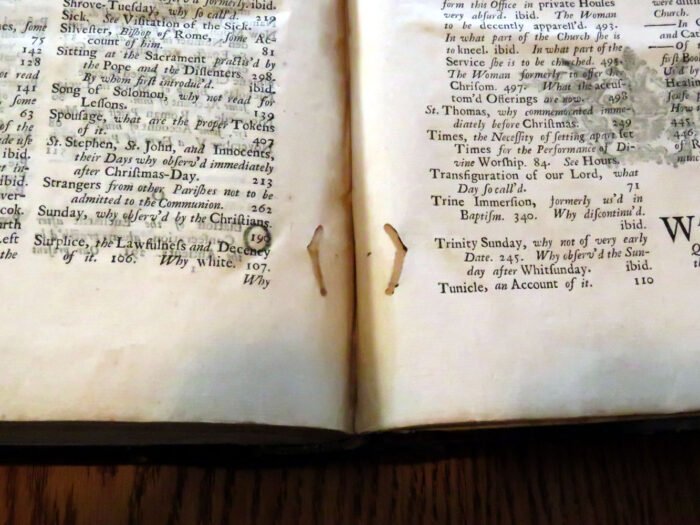 es, ſome
75
142
128
ot read
141
ſome
63
of the
ibid.
ibid.
ver-
cok.
Left
the
formerly. ibid.
Shrove-Tuesday, why ſo call'd. 219
Sick, See Viſitation of the Sick.
Silveſter, Biſhop of Rome, ſome Ac-
count of him. 81
Sitting at the Sacrament practis'd by
the Pope and the Diſſenters. 298.
By whom firſt introduc'd. ibid.
Song of Solomon, why not read for
Leſſons. 139
Spouſage, what are the proper Tokens
of it. 407
St. Stephen, St. John, and Innocents,
their Days why obſerv'd immediately
after Chriſtmas-Day. 213
Strangers from other Pariſhes not to be
admitted to the Communion. 262
Sunday, why obſerv'd by the Chriſtians.
190
Surplice, the Lawfulneſs and Decency
of it. 106. Why white. 107.
Why
form this Office in private Houſes
very abſurd. ibid. The Woman
to be decently apparell'd. 493.
In what part of the Church ſhe is
to kneel. ibid. In what part of the
Service ſhe is to be churched. 495.
The Woman formerly to offer her
Chriſom. 497. What the accuſ-
tom'd Offerings are now. 498
St. Thomas, why commemorated imme-
diately before Chriſtmas. 249
Times, the Neceſſity of ſetting apart ſet
Times for the Performance of Di-
vine Worſhip. 84. See Hours.
Transfiguration of our Lord, what
Day ſo call'd. 71
Trine Immerſion, formerly us'd in
Baptiſm. 340. Why diſcontinu'd.
ibid.
Trinity Sunday, why not of very early
Date. 245. Why obſerv'd the Sun-
day after Whitſunday. ibid.
Tunicle, an Account of it. 110
Church.
—In
and Cat
—Of
firſt Book
Us'd by
Healin
How
445.
of R
W